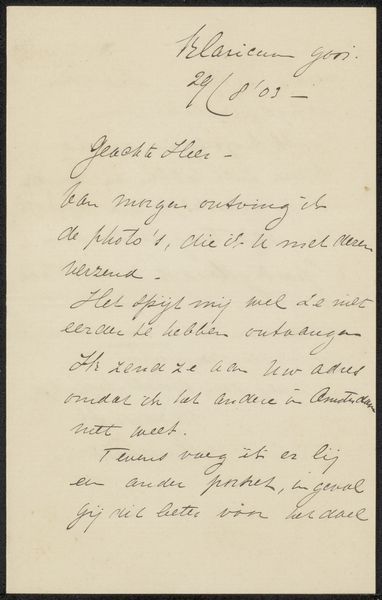 Klaricum gooi.
29/8 '03 —
Geachte Heer —
Van morgen ontving ik
de photo's, die ik U met dezen
verzend.
Het spijt mij wel ze niet
eerder te hebben ontvangen
Ik zend ze aan Uw adres
omdat ik het andere in Amsterdam
niet weet.
Tevens voeg ik er bij
een ander portret, in geval
gij dit beter voor het doel